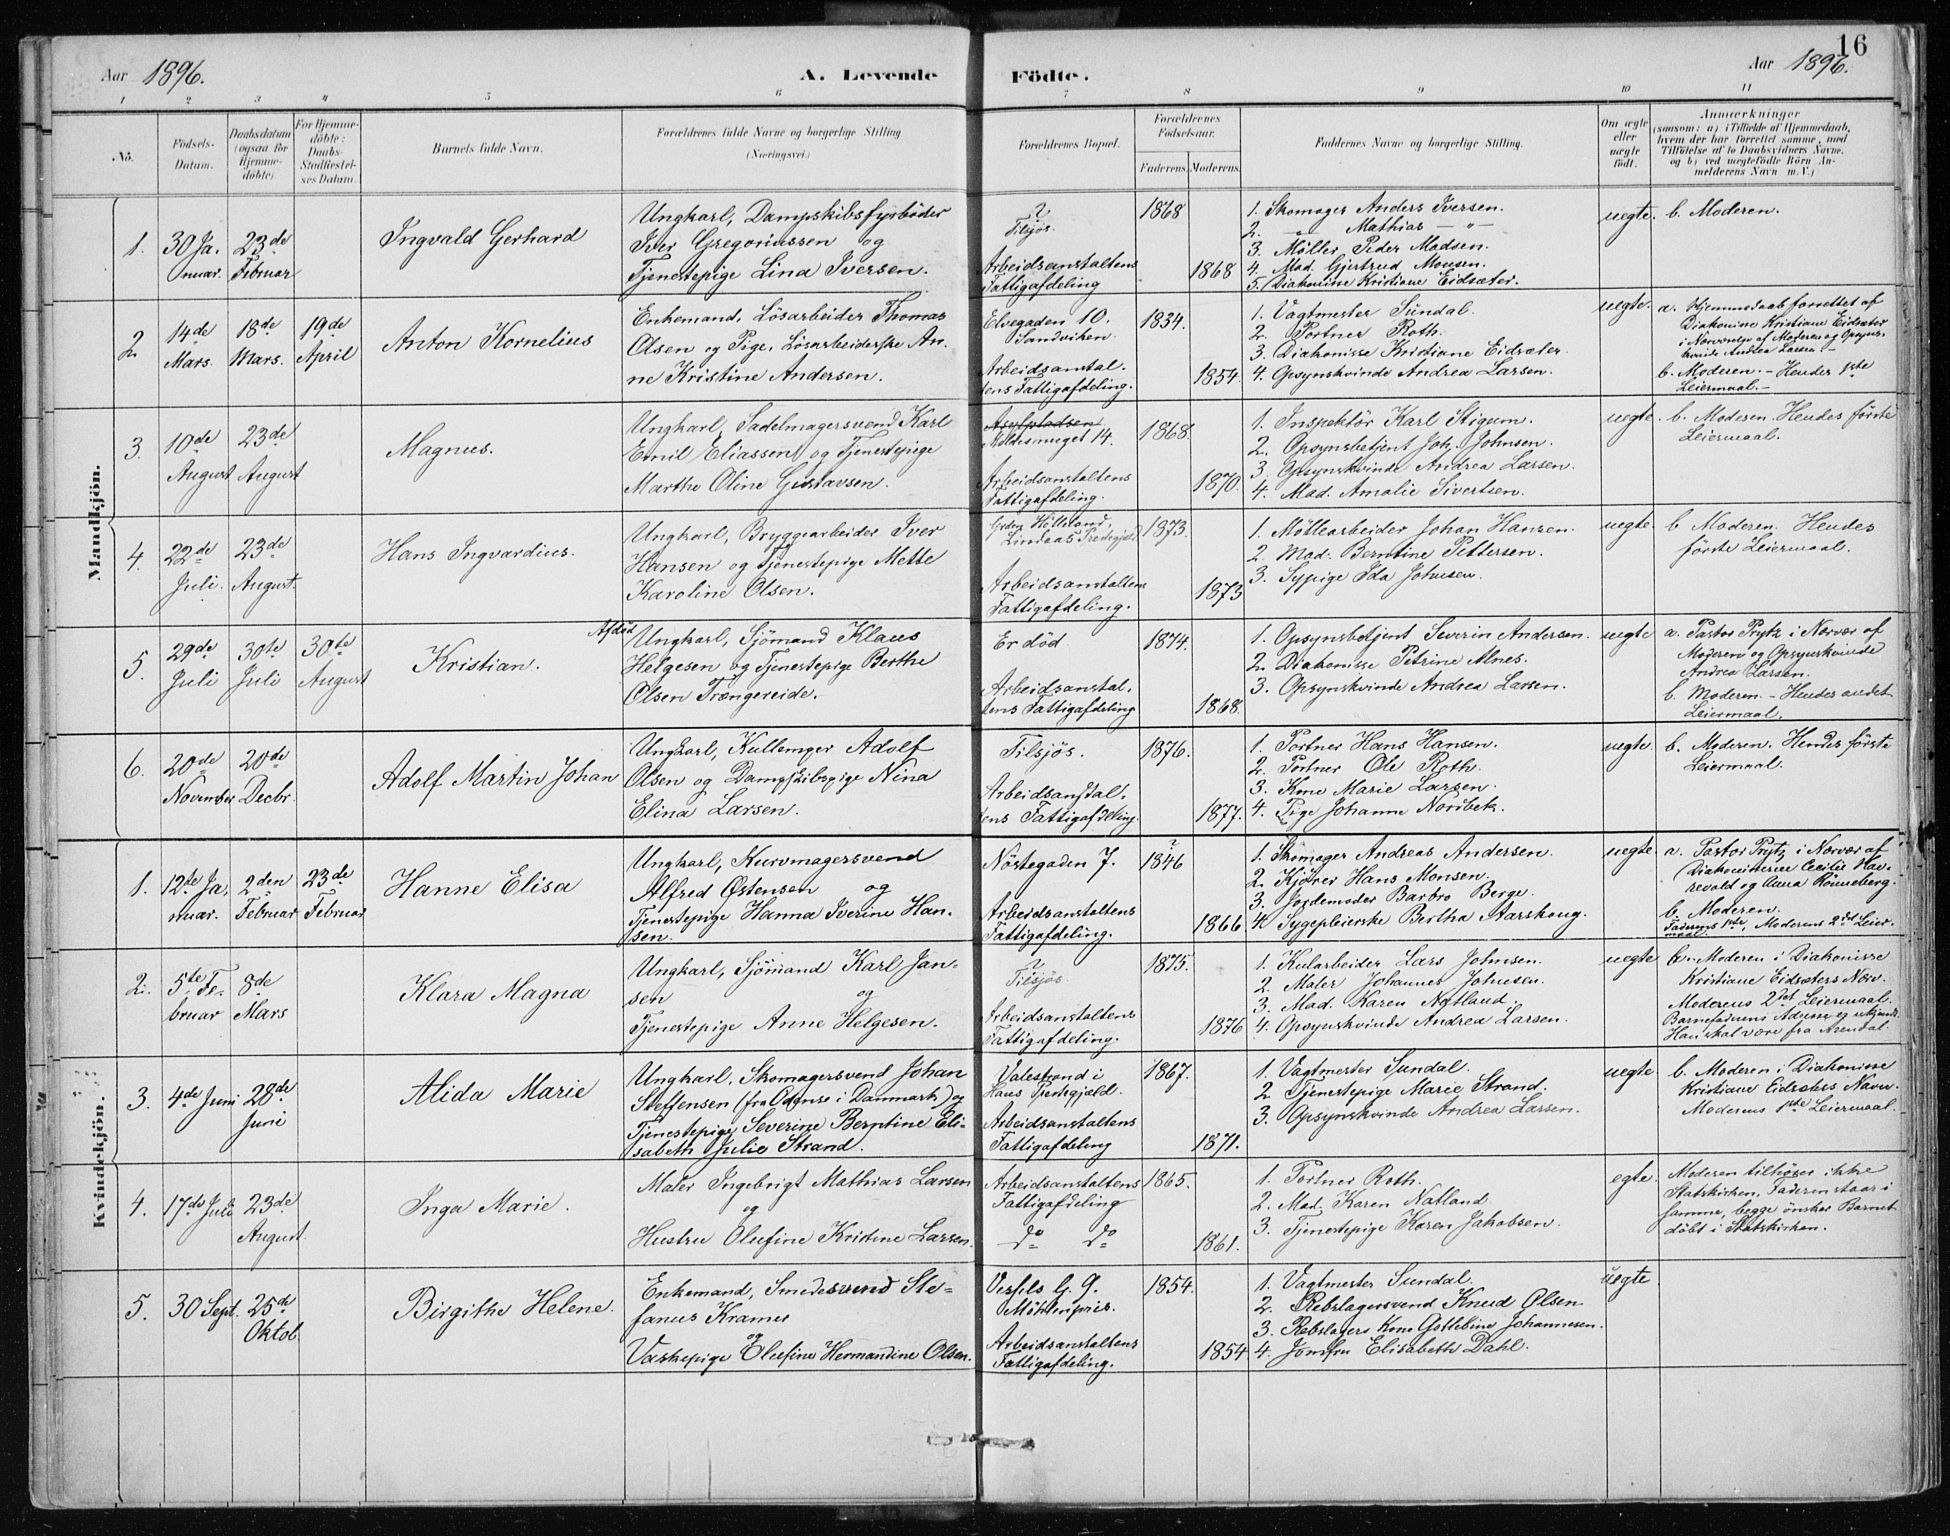 16
Aar 1896.
A. Levende Födte.
Aar 1896.
1 2 3 4 5 6 7 8 9 10 11
No.
Födsels-
Datum.
Daabsdatum
(ogsaa for
Hjemme-
döbte).
For Hjemme-
döbte:
Daabs-
Stadfæstel-
ses Datum.
Barnets fulde Navn.
Forældrenes fulde Navne og borgerlige Stilling
(Næringsvei.)
Forældrenes Bopæl.
Forældrenes
Födselsaar.
Faderens. Moderens.
Faddernes Navne og borgerlige Stilling.
Om ægte
eller
uægte
födt.
Anmærkninger
(saasom: a) i Tilfælde af Hjemmedaab,
hvem der har forrettet samme, med
Tilföielse af to Daabsvidners Navne,
og b) ved uægtefödte Börn An-
melderens Navn m. V.)
Mandkjön.
1.
30 Ja-
nuar.
23de
Februar
Ingvald Gerhard
Ungkarl, Dampskibsfyrböder
Iver Gregoriussen og
Tjenestepige Lina Iversen.
?
Tilsjös.
Arbeidsanstaltens
Fattigafdeling
1868
1868
1. Skomager Anders Iversen.
2. — " — Mathias — " —
3. Möller Peder Madsen.
4. Mad. Gjertrud Monsen.
5. Diakonisse Kristiane Eidsæter.
uegte.
b. Moderen.
2.
14de
Mars.
18de
Mars.
19de
April
Anton Kornelius
Enkemand, Lösarbeider Thomas
Olsen og Pige, Lösarbeiderske An-
ne Kristine Andersen.
Elvegaden 10.
Sandviken.
Arbeidsanstal-
tens Fattigafdeling.
1834.
1854
1. Vagtmester Sundal.
2. Portner Roth.
3. Diakonisse Kristiane Eidsæter.
4. Opsynskvinde Andrea Larsen.
uegte.
a. Hjemmedaab forrettet af
Diakonisse Kristiane Eidsæter
i Nærværelse af Moderen og Opsyns-
kvinde Andrea Larsen. —
b. Moderen. — Hendes 1ste
Leiermaal. —
3.
10de
August
23de
August
Magnus.
Ungkarl, Sadelmagersvend Karl
Emil Eliassen og Tjenestepige
Marthe Oline Gustavsen.
Asylpladsen
14.
Arbeidsanstaltens
Fattigafdeling.
1868.
1870
1. Inspektör Karl Stigum.
2. Opsynsbetjent Joh. Johnsen.
3. Opsynskvinde Andrea Larsen.
4. Mad. Amalie Sivertsen.
uegte.
b. Moderen. Hendes förste
Leiermaal.
4.
22de
Juli.
23de
August.
Hans Ingvardius.
Ungkarl, Bryggearbeider Iver
Hansen og Tjenestepige Mette
Karoline Olsen.
Lindaas Prestegjeld
Arbeidsanstaltens
Fattigafdeling.
1873.
1873
1. Möllearbeider Johan Hansen.
2. Mad. Berntine Pettersen.
3. Sypige Ida Johnsen.
uegte.
b. Moderen. Hendes
förste Leiermaal.
5.
29de
Juli
30te
Juli
30te
August
Afdöd
Kristian.
Ungkarl, Sjömand Klaus
Helgesen og Tjenestepige Berthe
Olsen Trængereide.
Er död
Arbeidsanstal-
tens Fattigafdeling
1874.
1868.
1. Opsynsbetjent Severin Andersen.
2. Diakonisse Petrine Alnes.
3. Opsynskvinde Andrea Larsen.
uegte
a. Pastor Prytz i Nærvær af
Moderen og Opsynskvinde
Andrea Larsen.
b. Moderen. — Hendes andet
Leiermaal.
6.
20de
November
20de
Decbr.
Adolf Martin Johan
Ungkarl, Kullemper Adolf
Olsen og Dampskibspige Nina
Elina Larsen.
Tilsjös.
Arbeidsanstal-
tens Fattigafdeling.
1876.
1877.
1. Portner Hans Hansen.
2. Portner Ole Roth.
3. Kone Marie Larsen.
4. Pige Johanne Nordbek.
uegte.
b. Moderen. Hendes förste
Leiermaal.
Kvindekjön.
1.
12te Ja-
nuar.
2den
Februar
23de
Februar
Hanne Elisa
Ungkarl, Kurvmagersvend
Alfred Østensen og
Tjenestepige Hanna Iverine Han-
sen.
Nöstegaden 7.
Arbeidsanstaltens
Fattigafdeling.
?
1846
1866
1. Skomager Andreas Andersen.
2. Kjörer Hans Monsen.
3. Jordemoder Barbro Berge.
4. Sygepleierske Bertha Aarskoug.
uegte.
a. Pastor Prytz i Nærvær af
Diakonisserne Cecilie Hau-
revold og Anna Rönneberg.
b. Moderen.
Faderens 1ste, Moderens 2det Leier-
maal.
2.
5te Fe-
bruar
8de
Mars
Klara Magna
Ungkarl, Sjömand Karl Jan-
sen
og
Tjenestepige Anne Helgesen.
?
Tilsjös.
Arbeidsanstaltens
Fattigafdeling.
1875.
1876
1. Kularbeider Lars Johnsen.
2. Maler Johannes Johnsen.
3. Mad. Karen Natland.
4. Opsynskvinde Andrea Larsen.
uegte
b. Moderen i Diakonisse
Kristiane Eidsæters Nærv.
Moderens 2det Leiermaal.
Barnefaderens Adresse er ukjendt.
Han skal være fra Arendal.
3.
4de Juni
28de
Juni
Alida Marie
Ungkarl, Skomagersvend Johan
Steffensen (fra Odense i Danmark) og
Tjenestepige Severine Berntine Eli-
sabeth Julie Strand.
Valestrand i
Haus Prestegjeld.
Arbeidsanstaltens
Fattigafdeling
1867.
1871.
1. Vagtmester Sundal.
2. Tjenestepige Marie Strand.
3. Opsynskvinde Andrea Larsen.
uegte
b. Moderen i Diakonisse
Kristiane Eidsæters Nærv.
Moderens 1ste Leiermaal.
4.
17de Juli
23de
August.
Inga Marie.
Maler Ingebrigt Mathias Larsen
og
Hustru Olufine Kristine Larsen.
Arbeidsanstaltens
Fattigafdeling
do do
1865.
1861.
1. Portner Roth.
2. Mad. Karen Natland.
3. Tjenestepige Karen Jakobsen.
egte.
Moderen tilhörer ikke
Statskirken, Faderen staar i
samme, begge önsker Barnet
döbt i Statskirken.
5.
30 Sept.
25de
Oktob.
Birgithe Helene.
Enkemand, Smedesvend Ste-
fanus Kramer
og
Vaskepige Olufine Hermandine Olsen.
Vessels G. 9.
Möhlenpris.
Arbeidsanstaltens
Fattigafdeling.
1854.
1854
1. Vagtmester Sundal.
2. Rebslagersvend Knud Olsen
3. Rebslagers Kone Gottebine Johannesen.
4. Jomfru Elisabeth Dahl.
uegte